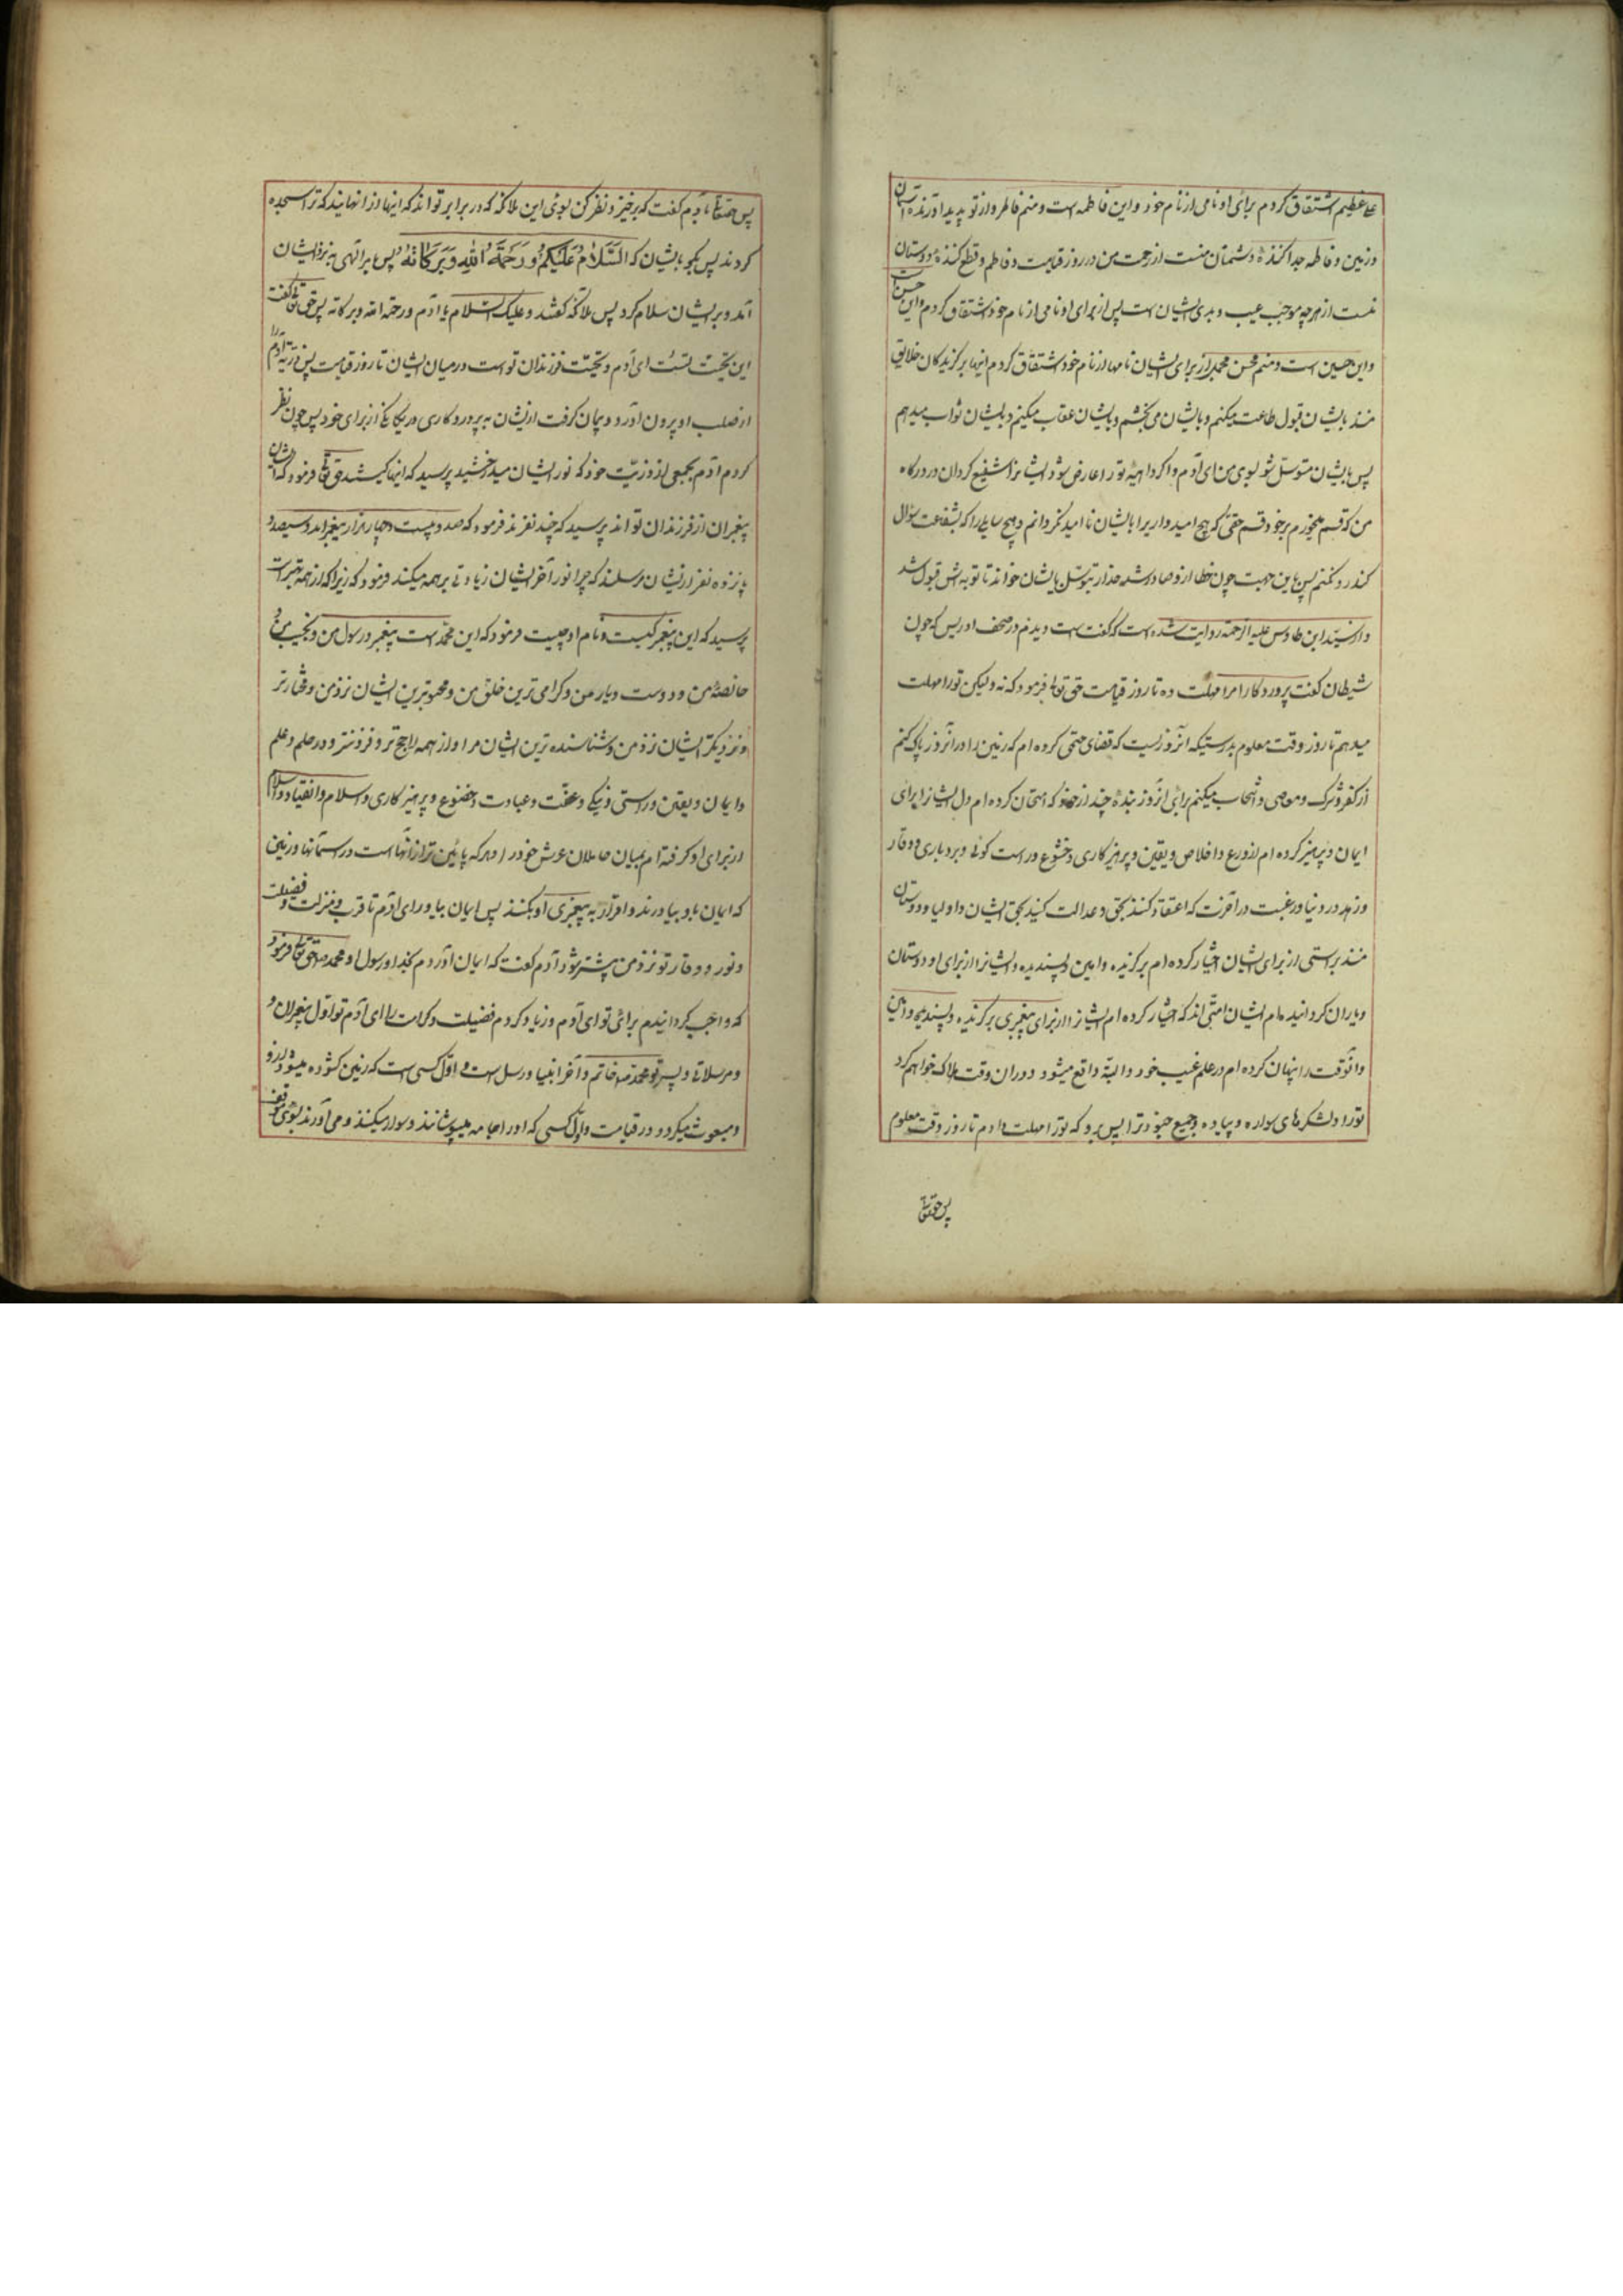 علی عظیم اشتقاق کردم برای او نامی از نام خود و این فاطمه است و منم فاطر و از نو پدید آورندهٔ آسمان
و زمین و فاطمه جدا کنندهٔ دشمنان منست از رحمت من در روز قیامت و فاطم و قطع کنندهٔ دوستان
منست از هرچه موجب عیب و بدی ایشان است پس از برای او نامی از نام خود اشتقاق کردم و این حسن است
و این حسین است و منم محسن مجمل از برای ایشان نامها از نام خود اشتقاق کردم اینها برگزیدگان خلایق
منند بایشان قبول طاعت میکنم و بایشان می بخشم و بایشان عقاب میکنم و بایشان ثواب میدهم
پس بایشان متوسل شو بسوی من ای آدم و اگر داهیهٔ تو را عارض شود ایشانرا شفیع گردان در درگاه
من که قسم میخورم بر خود قسم حقی که هیچ امیدواریرا بایشان ناامید نگردانم و هیچ سایلی را که بشفاعت سؤال
کند رد نکنم پس باین جهت چون خطا از او صادر شد خدا را بتوسل بایشان خواند تا توبه اش قبول شد
و از سید ابن طاوس علیه الرحمة روایت شده است که گفت است دیدم در صحف ادریس که چون
شیطان گفت پروردگارا مرا مهلت ده تا روز قیامت حق تعالی فرمود که نه ولیکن تو را مهلت
میدهم تا روز وقت معلوم بدرستیکه آنروزیست که قضای حتمی کرده ام که زمین را در آنروز پاک کنم
از کفر و شرک و معاصی و انتخاب میکنم برای آنروز بندهٔ چند از خود که امتحان کرده ام دل ایشانرا برای
ایمان و پر کرده ام از ورع و اخلاص و یقین و پرهیزکاری و خشوع و راست گوئی و بردباری و وقار
و زهد در دنیا و رغبت در آخرت که اعتقاد کنند بحق و عدالت کنند بحق ایشان و اولیا و دوستان
منند براستی از برای ایشان اختیار کرده ام برگزیده و امین و پسندیده و ایشانرا از برای او دوستان
و یاران گردانیده ام ایشان امتی اند که اختیار کرده ام ایشانرا از برای پیغمبری برگزیده و پسندیده و امین
و آنوقت را پنهان کرده ام در علم غیب خود و البته واقع میشود و در آن وقت هلاک خواهم کرد
تو را و لشکرهای سواره و پیاده و جمیع جنود ترا پس برو که تو را مهلت دادم تا روز وقت معلوم
پس حقتعالی
پس حقتعالی بآدم گفت که برخیز و نظر کن بسوی این ملائکه که در برابر تواند که اینها از آنهایند که ترا سجده
کردند پس بگو بایشان که السَّلَامُ عَلَیْکُمْ وَرَحْمَةُ اللّٰهِ وَبَرَکَاتُهُ پس بامر الهی به نزد ایشان
آمد و بر ایشان سلام کرد پس ملائکه گفتند و علیک السلام یا آدم و رحمة الله و برکاته پس حق تعالی گفت
این تحیت تست ای آدم و تحیت فرزندان تو است در میان ایشان تا روز قیامت پس ذریّه آدم را
از صلب او بیرون آورد و پیمان گرفت از ایشان به پروردگاری و یگانگی از برای خود پس چون نظر
کردم آدم بجمعی از ذریّت خود که نور ایشان میدرخشید پرسید که اینها کیستند حق تعالی فرمود که ایشان
پیغمبران از فرزندان تو اند پرسید که چند نفرند فرمود که صد و بیست و چهار هزار پیغمبراند و سیصد و
پانزده نفر از ایشان مرسلند که چرا نور آخر ایشان زیادتی بر همه میکند فرمود که زیرا که از همه بهتر است
پرسید که این پیغمبر کیست و نام او چیست فرمود که این محمّد است پیغمبر و رسول من و نجیب من و
خاصهٔ من و دوست و یار من و گرامی ترین خلق من و محبوبترین ایشان نزد من و مختارتر
و نزدیکتر ایشان نزد من و شناسنده ترین ایشان مرا و از همه راجح تر و فزونتر در حلم و علم
و ایمان و یقین و راستی و نیکی و عفّت و عبادت و خضوع و پرهیزکاری و اسلام و انقیاد و اسلام
از برای او گرفته ام پیمان حاملان عرش خود را و هر که پائین تر از آنها است در آسمانها و زمین
که ایمان باو بیاورند و اقرار به پیغمبری او بکنند پس ایمان بیاور ای آدم تا قرب و منزلت و فضیلت
و نور و وقار تو نزد من بیشتر شود آدم گفت که ایمان آوردم بخدا و رسول او محمد ص حق تعالی فرمود
که واجب گردانیدم برای تو ای آدم و زیاد کردم فضیلت و کرامت را ای آدم تو اول پیغمبران و
و مرسلانی و پسر تو محمد ص خاتم و آخر انبیا و رسل است و اوّل کسی است که زمین گشوده میشود از او
و مبعوث میگردد در قیامت و اوّل کسی که او را جامه میپوشانند و سوار میکنند و می آورند بسوی موقف